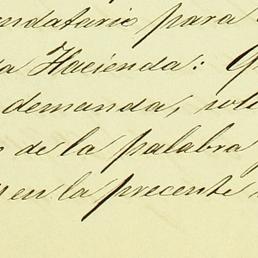 ndatario para
la Hacienda: Q
demanda, vol
de la palabra
en la precente